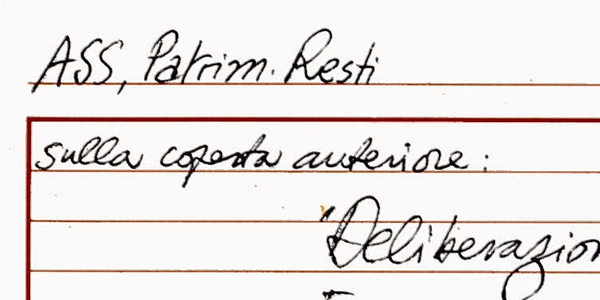 ASS, Patrim. Resti
sulla coperta anteriore:
"Deliberazion